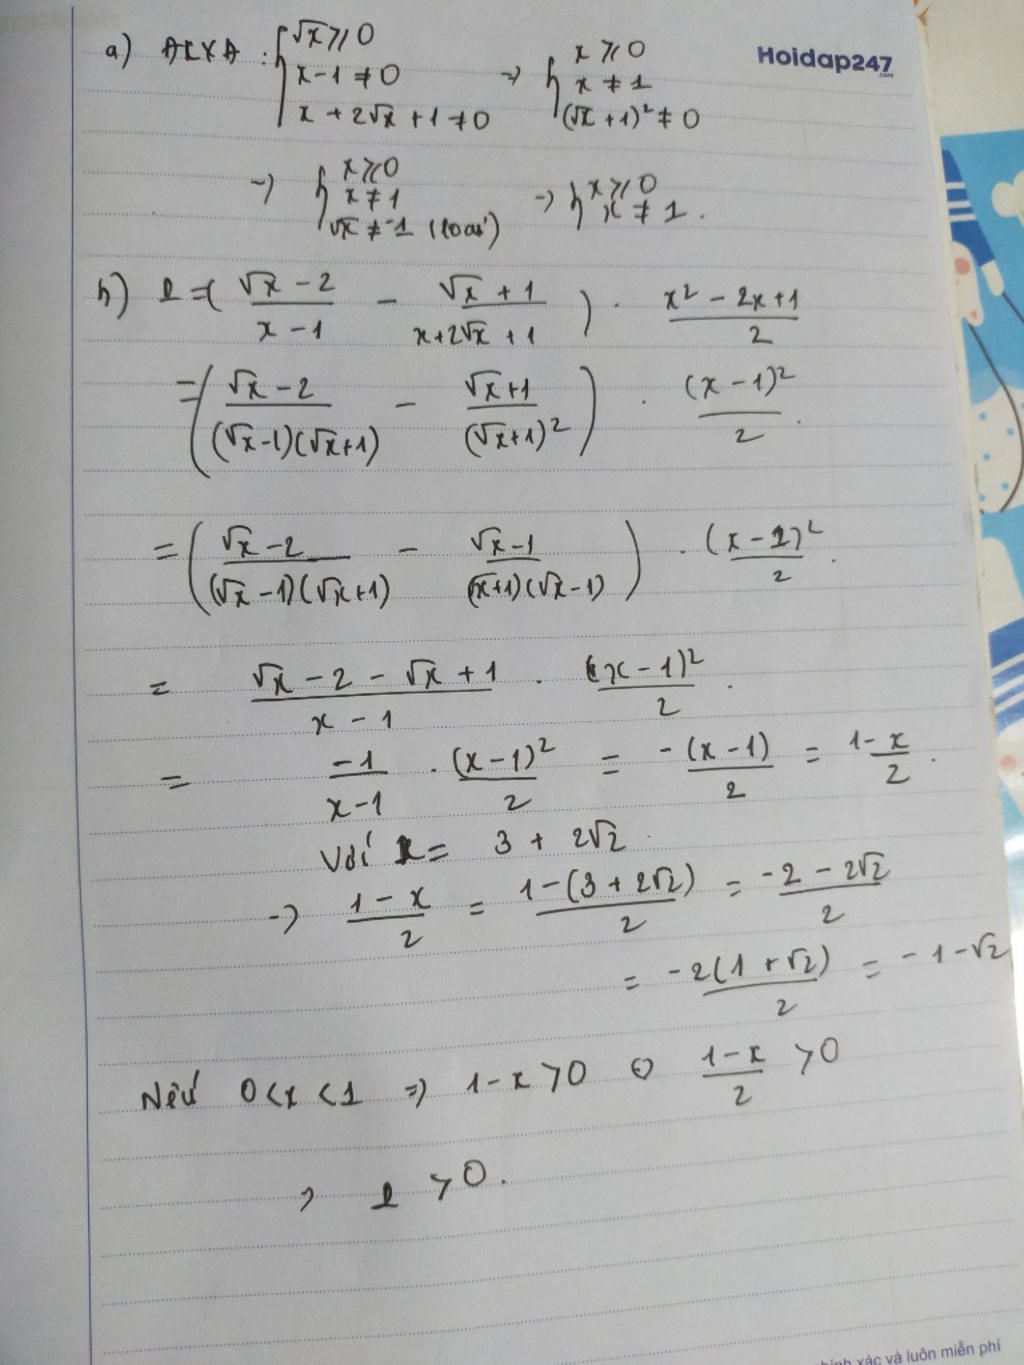 Hoidap247.com
a) ĐKXĐ : { √x ≥ 0 ; x - 1 ≠ 0 ; x + 2√x + 1 ≠ 0 → { x ≥ 0 ; x ≠ 1 ; (√x + 1)² ≠ 0
→ { x ≥ 0 ; x ≠ 1 ; √x ≠ -1 (loại) → { x ≥ 0 ; x ≠ 1 .
b) Q = ( (√x - 2)/(x - 1) - (√x + 1)/(x + 2√x + 1) ) . (x² - 2x + 1)/2
= ( (√x - 2)/((√x - 1)(√x + 1)) - (√x + 1)/(√x + 1)² ) . (x - 1)²/2 .
= ( (√x - 2)/((√x - 1)(√x + 1)) - (√x - 1)/((√x + 1)(√x - 1)) ) . (x - 1)²/2 .
= (√x - 2 - √x + 1)/(x - 1) . (x - 1)²/2 .
= -1/(x - 1) . (x - 1)²/2 = -(x - 1)/2 = (1 - x)/2 .
Với x = 3 + 2√2 .
→ (1 - x)/2 = (1 - (3 + 2√2))/2 = (-2 - 2√2)/2
= -2(1 + √2)/2 = -1 - √2
Nếu 0 < x < 1 ⇒ 1 - x > 0 ⇔ (1 - x)/2 > 0
⇒ Q > 0 .
xác và luôn miễn phí